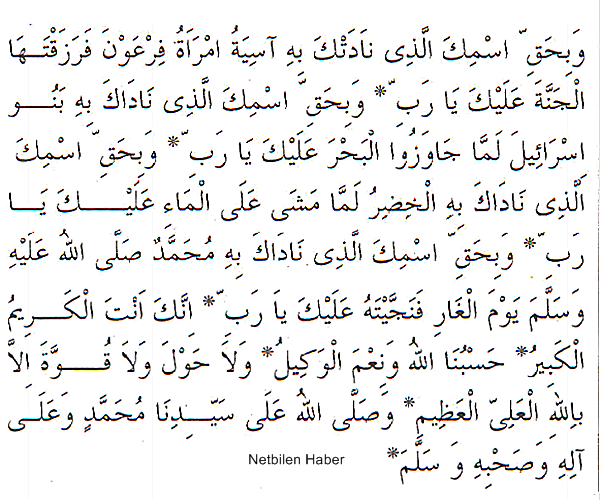 وَبِحَقِّ اسْمِكَ الَّذِى نَادَتْكَ بِهِ آسِيَةُ امْرَأَةُ فِرْعَوْنَ فَرَزَقْتَـهَا
الْجَنَّةَ عَلَيْكَ يَا رَبِّ * وَبِحَقِّ اسْمِكَ الَّذِى نَادَاكَ بِهِ بَنُـو
اِسْرَائِيلَ لَمَّا جَاوَزُوا الْبَحْرَ عَلَيْكَ يَا رَبِّ * وَبِحَقِّ اسْمِكَ
الَّذِى نَادَاكَ بِهِ الْخِضِرُ لَمَّا مَشَى عَلَى الْمَاءِ عَلَيْـكَ يَـا
رَبِّ * وَبِحَقِّ اسْمِكَ الَّذِى نَادَاكَ بِهِ مُحَمَّدٌ صَلَّى اللهُ عَلَيْهِ
وَسَلَّمَ يَوْمَ الْغَارِ فَنَجَّيْتَهُ عَلَيْكَ يَا رَبِّ * اِنَّكَ اَنْتَ الْكَـرِيمُ
الْكَبِيرُ * حَسْبُنَا اللهُ وَنِعْمَ الْوَكِيلُ * وَلَا حَوْلَ وَلَا قُـوَّةَ اِلَّا
بِاللهِ الْعَلِىِّ الْعَظِيمِ * وَصَلَّى اللهُ عَلَى سَيِّـدِنَا مُحَمَّدٍ وَعَلَـى
آلِهِ وَصَحْبِهِ وَ سَلَّمَ *
Netbilen Haber